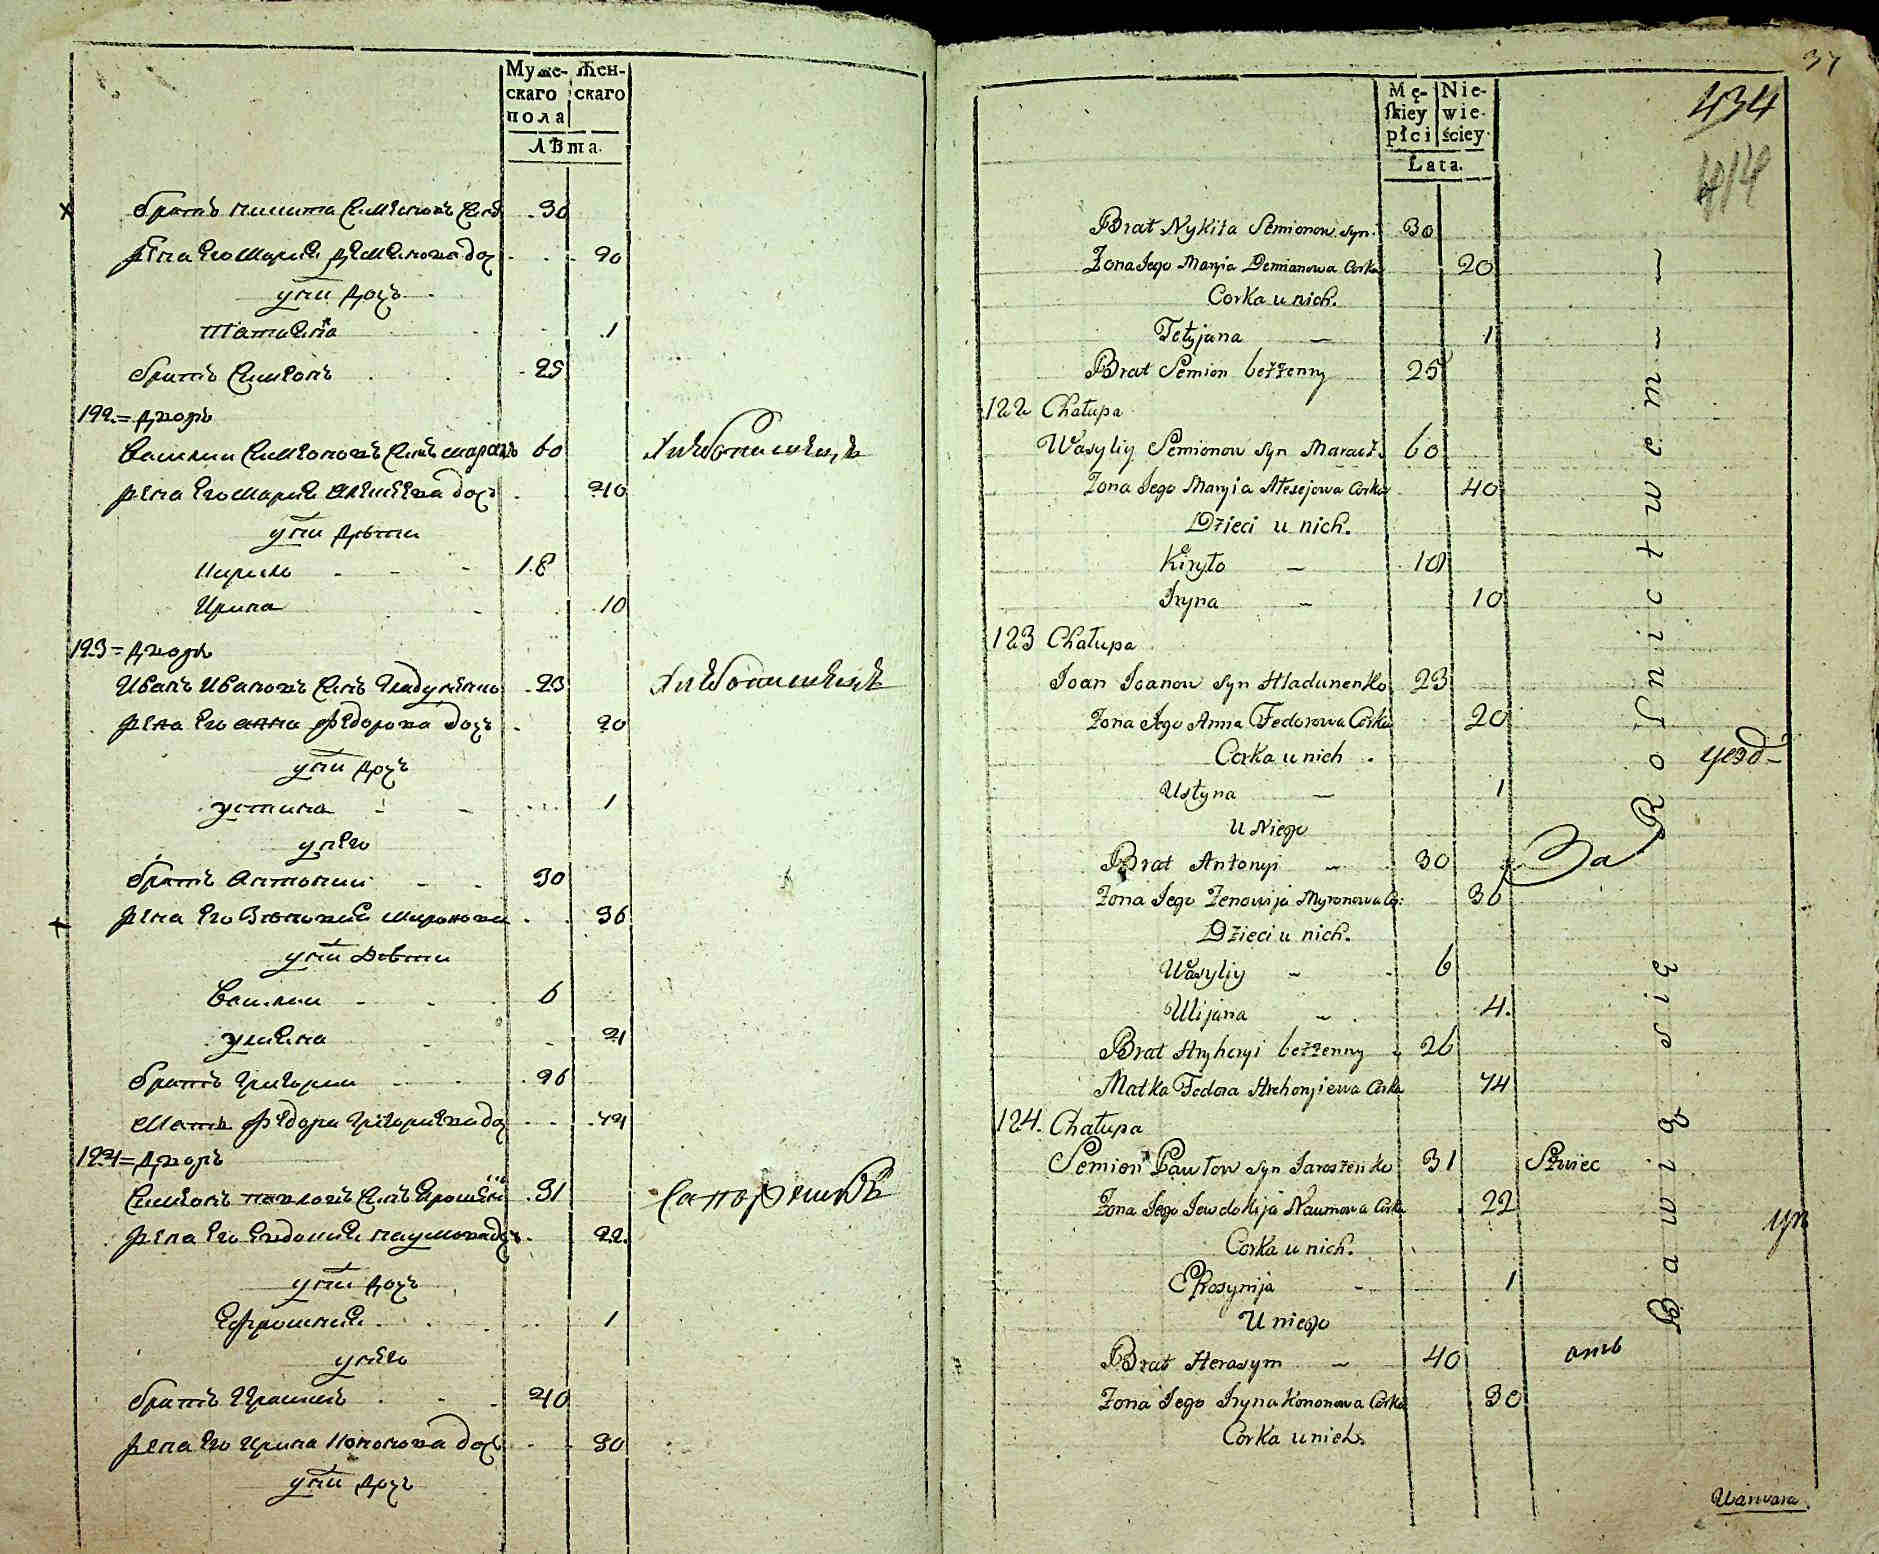 Муже- Жен-
скаго скаго
пола
Лѣта.
братъ никита Симеоновъ Снъ 30
жена его Мария Демянова доч 20
у них дочъ
Татияна 1
братъ Симеонъ 25
122 = дворъ
Василии Симеоновъ Снъ марачъ 60 Хлебопашецъ
жена его Мария Алексеева дочъ 40
у них дѣти
Кирило 18
Ирина 10
123 = дворъ
Иванъ Ивановъ Снъ Гладуненко 23 Хлебопашецъ
жена его анна Федорова дочъ 20
у них дочъ
устина 1
у него
братъ Антонии 30
жена его Зѣновия миронова 36
у них дѣти
Василии 6
улияна 4
братъ Григории 26
Мать Федора Григориева доч 74
124 = дворъ
Симеонъ павловъ Снъ Ярошенко 31 Сапожникъ
жена его Евдокия наумова доч 22
у них дочъ
Ефросиния 1
у него
братъ Герасимъ 40
жена его Ирина Кононова доч 30
у них дочъ
37
Mę- Nie-
skiey wie-
płci ściey
Lata.
434
414
Brat Nykita Semionow Syn 30
Zona Jego Maryia Demianowa Corka 20
Corka u nich.
Tetyjana – 1
Brat Semion bezżenny 25
122 Chałupa
Wasyliy Semionow Syn Maracz. 60
Zona Jego Maryia Alexejowa Corka 40
Dzieci u nich.
Kiryło – 18
Iryna – 10
123 Chałupa
Joan Joanow Syn Hladunenko 23
Zona Jego Anna Fedorowa Corka 20
Corka u nich.
Ustyna – 1
U Niego
Brat Antonyi – 30
Zona Jego Zenowija Myronowa Co: 36
Dzieci u nich.
Wasyliy – 6
Ulijana – 4.
Brat Hryhoryi bezżenny 26
Matka Fedora Hrehoryiewa Corka 74
124. Chałupa
Semion Pawłow Syn Jaroszenko 31 Szwiec
Zona Jego Jewdokija Naumowa Corka 22
Corka u nich.
Efrosynija – 1
U niego
Brat Herasym – 40
Zona Jego Iryna Kononowa Corka 30
Corka u nich.
Bawią się Rolnictwem – –
уезд-
За
ань
Warwara